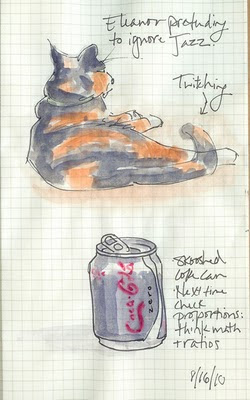 Eleanor pretending
to ignore Jazz.
Twitching
Coca-Cola
zero
skooshed
coke can
Next time
check
proportions:
think math
+ ratios
8/16/10